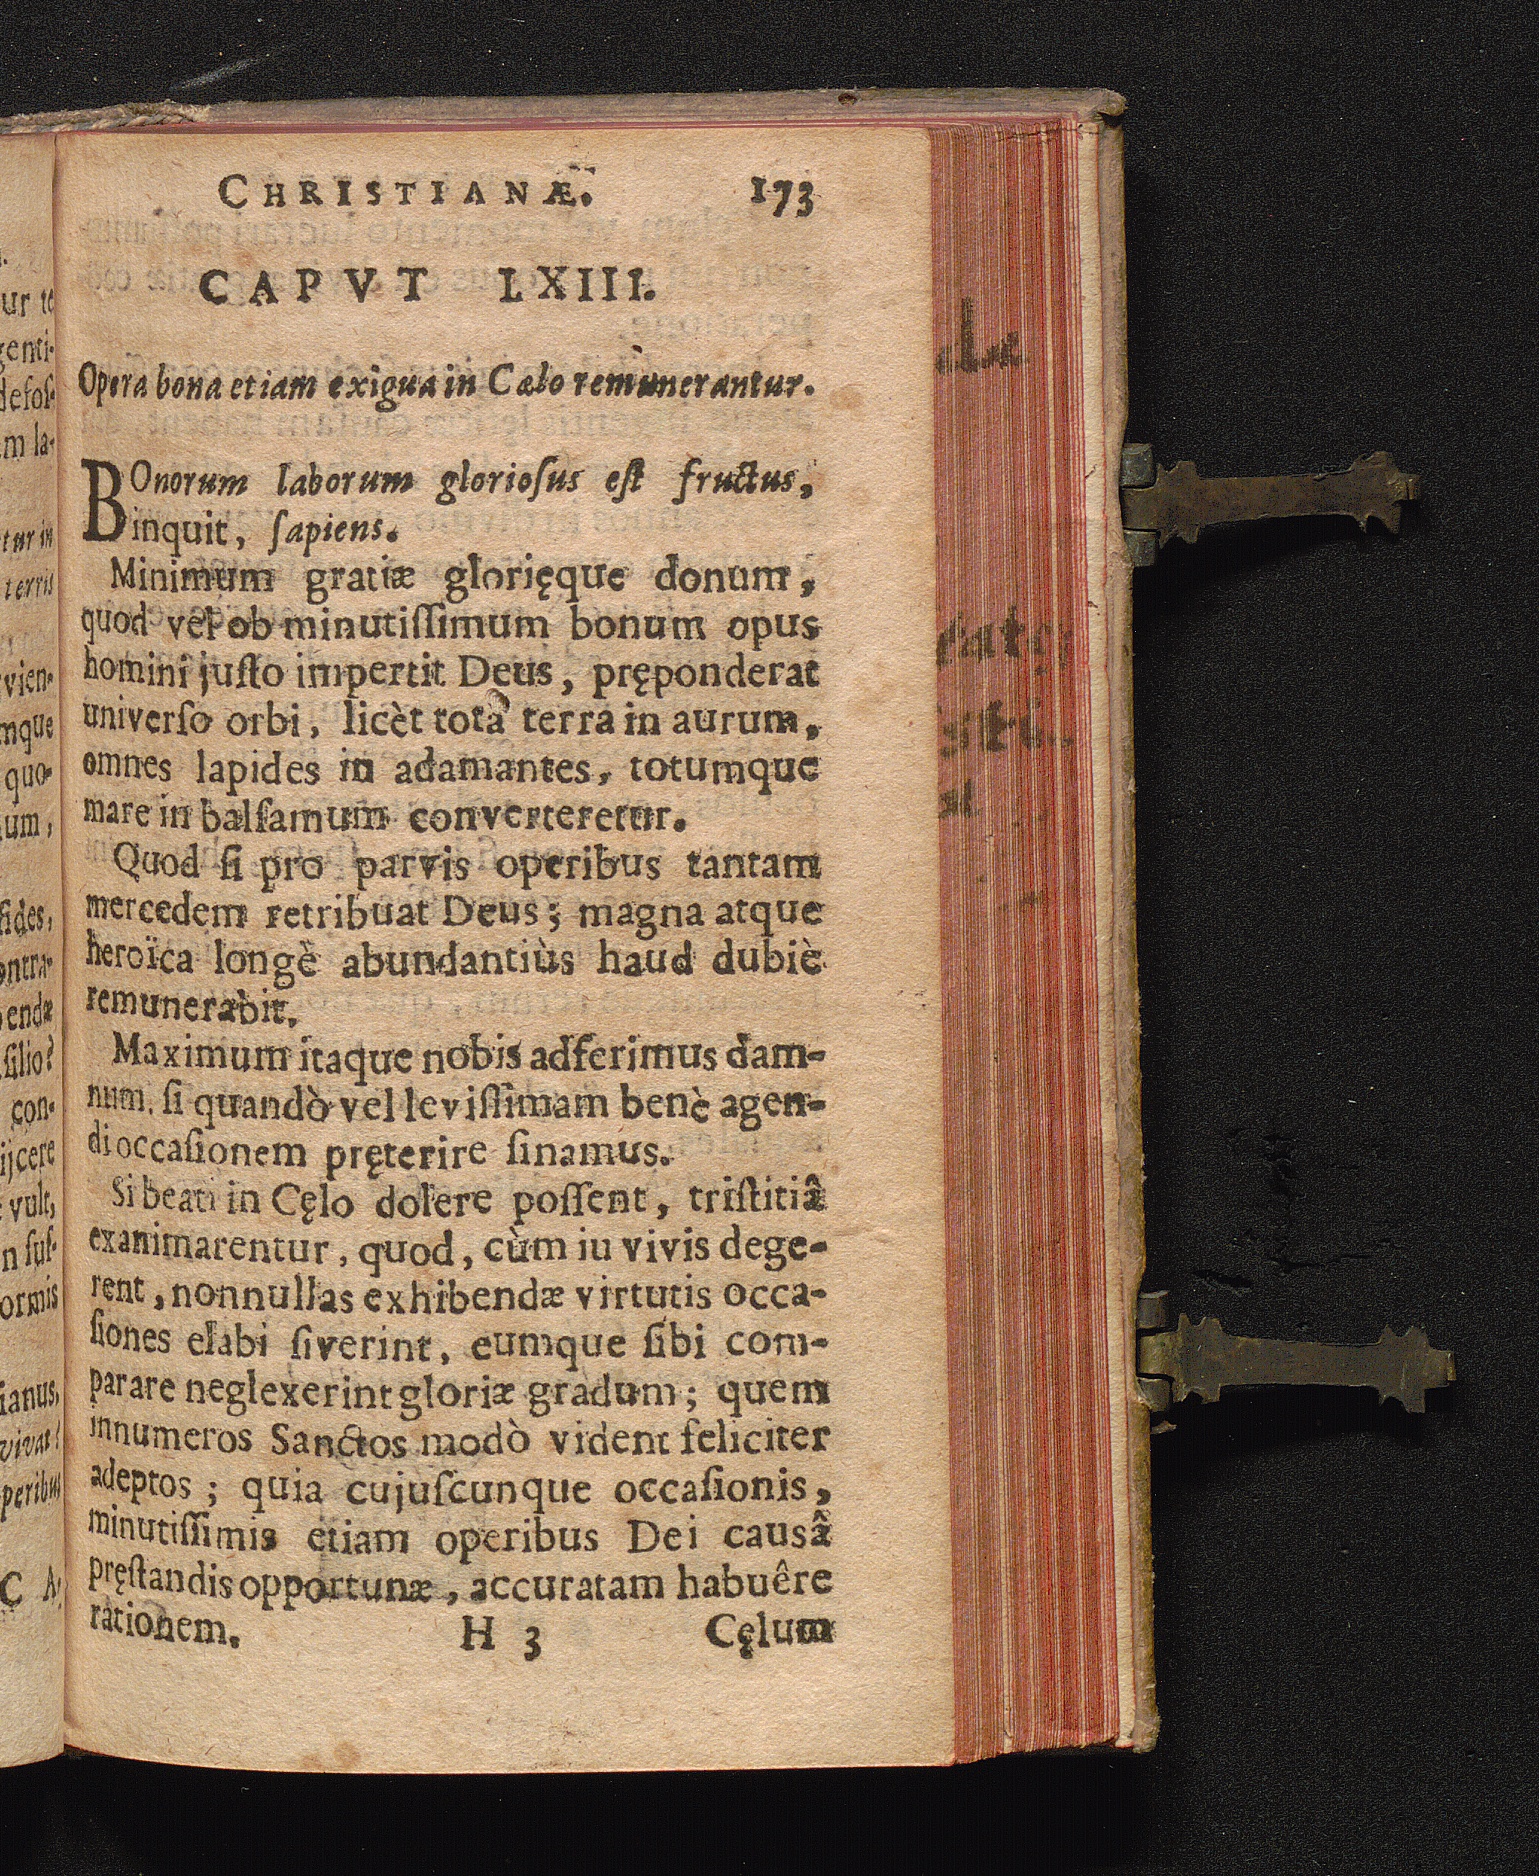 CHRISTIANÆ. 173
CAPVT LXIII.
Opera bona etiam exigua in Cælo remunerantur.
BOnorum laborum gloriosus est fructus,
inquit, sapiens.
Minimum gratiæ glorięque donum,
quod vel ob minutissimum bonum opus
homini justo impertit Deus, pręponderat
universo orbi, licèt tota terra in aurum,
omnes lapides in adamantes, totumque
mare in balsamum converteretur.
Quod si pro parvis operibus tantam
mercedem retribuat Deus; magna atque
heroïca longè abundantiùs haud dubiè
remunerabit.
Maximum itaque nobis adferimus dam-
num, si quandò vel levissimam benè agen-
di occasionem pręterire sinamus.
Si beati in Cęlo dolere possent, tristitiâ
exanimarentur, quod, cùm iu vivis dege-
rent, nonnullas exhibendæ virtutis occa-
siones elabi siverint, eumque sibi com-
parare neglexerint gloriæ gradum; quem
innumeros Sanctos modò vident feliciter
adeptos; quia cujuscunque occasionis,
minutissimis etiam operibus Dei causâ
pręstandis opportunæ, accuratam habuêre
rationem. H 3 Cęlum